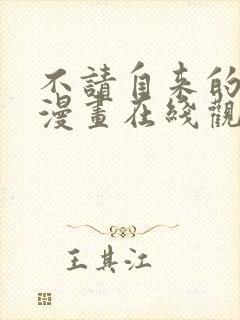 不請自来的
漫畫在綫觀
王其江